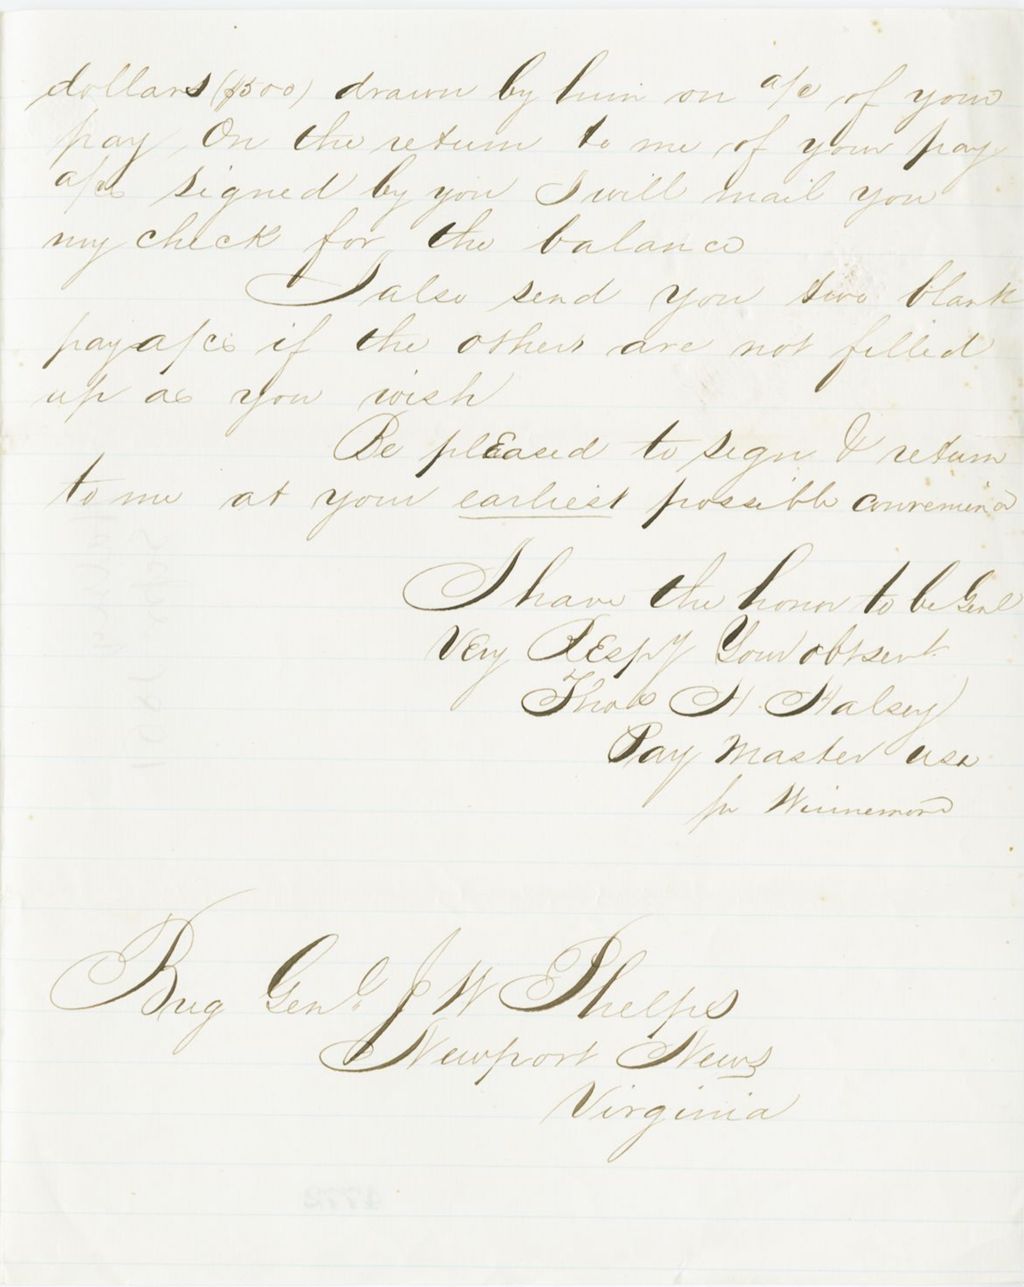 dollars ($500) drawn by him on a/c of your
pay, On the return to me of your pay
a/cs signed by you I will mail you
my check for the balance
I also send you two blank
pay a/cs if the others are not filled
up as you wish
Be pleased to sign & return
to me at your earliest possible convenience
I have the honor to be Genl
Very Respy Your obt servt
Thos H. Halsey
Pay Master USA
pr
Brig Genl J W Phelps
Newport News
Virginia